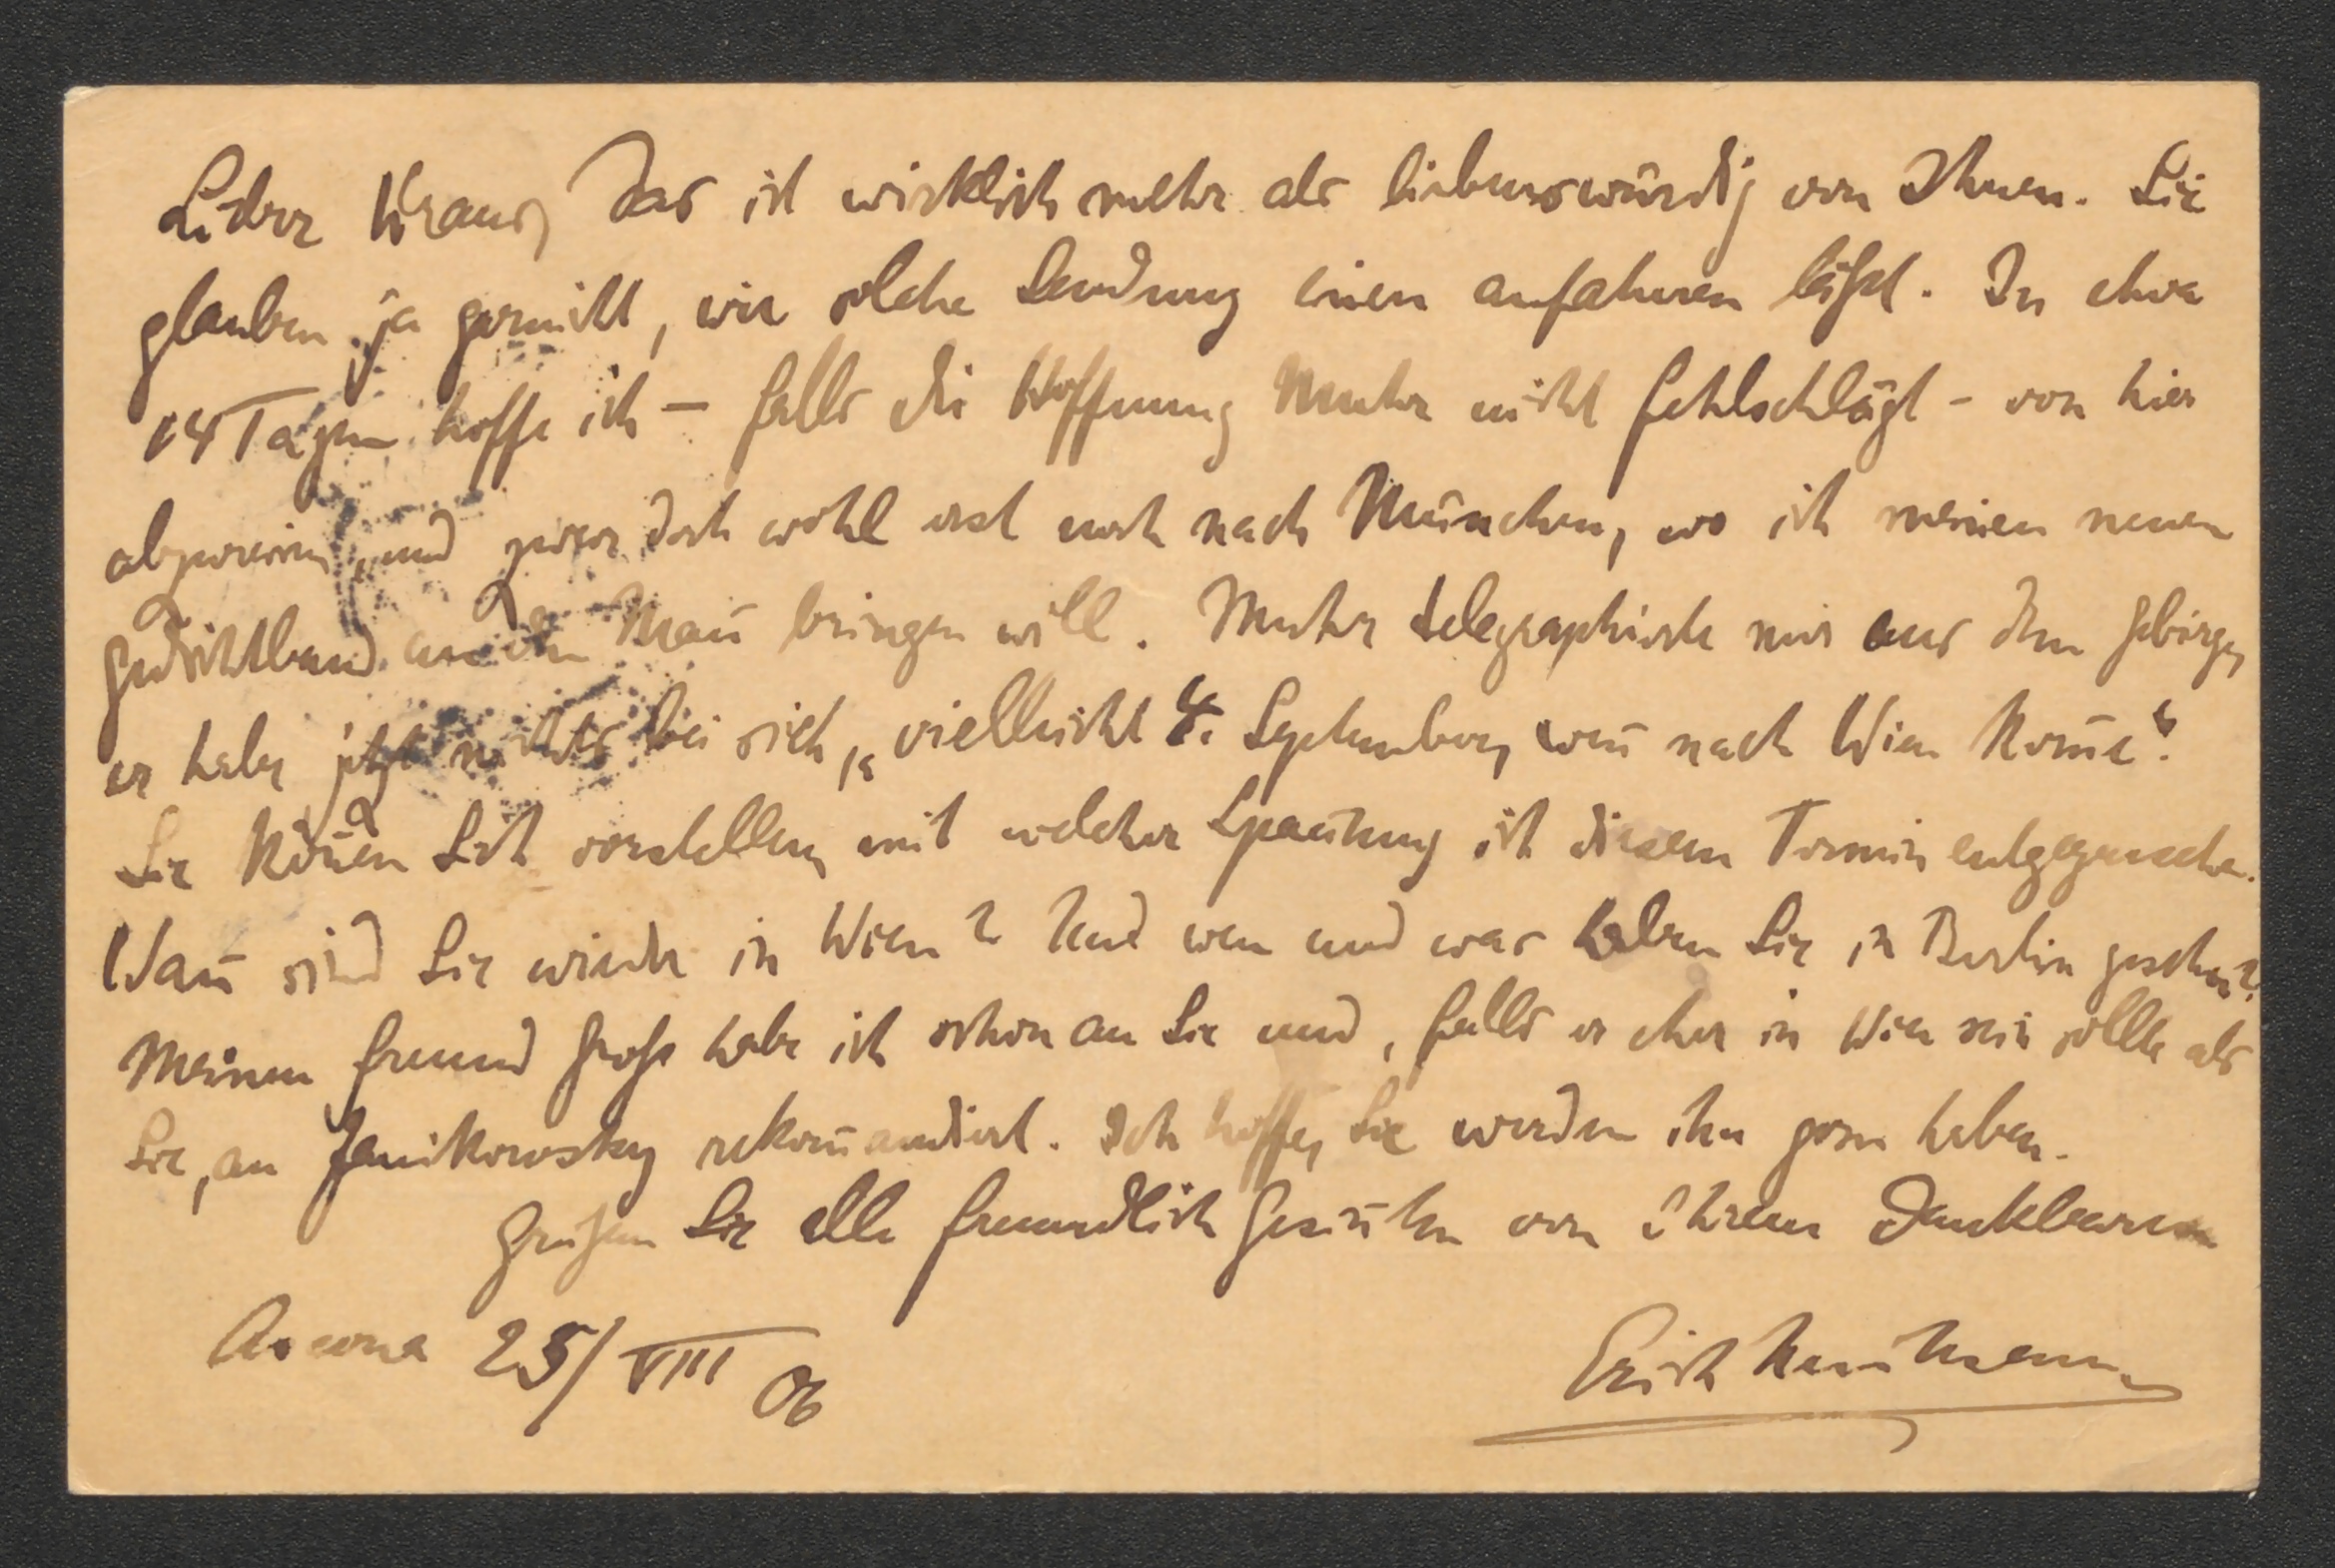 Lieber Kraus, das ist wirklich mehr als liebenswürdig von Ihnen. Sie
glauben ja garnicht, wie solche Sendung einen aufatmen läßt. In etwa
14 Tagen hoffe ich – falls die Hoffnung Muhr nicht fehlschlägt – von hier
abzureisen, und zwar doch wohl erst noch nach München, wo ich meinen neuen
Gedichtband an den Mañ bringen will. Muhr telegraphierte mir aus dem Gebirge,
er habe jetzt nichts bei sich, „vielleicht 4. September, weñ nach Wien kom̄e“.
Sie köñen Sich vorstellen, mit welcher Spañung ich diesem Termin entgegensehe.
Wañ sind Sie wieder in Wien? Und wen und was haben Sie in Berlin gesehen?
Meinen Freund Groß habe ich schon an Sie und, falls er eher in Wien sein sollte als
Sie, an Janikowsky rekom̄andiert. Ich hoffe, Sie werden ihn gern haben.
Grüßen Sie alle freundlich Gesiñten von Ihrem dankbaren
Ascona 25/VIII 06
Erich Mühsam